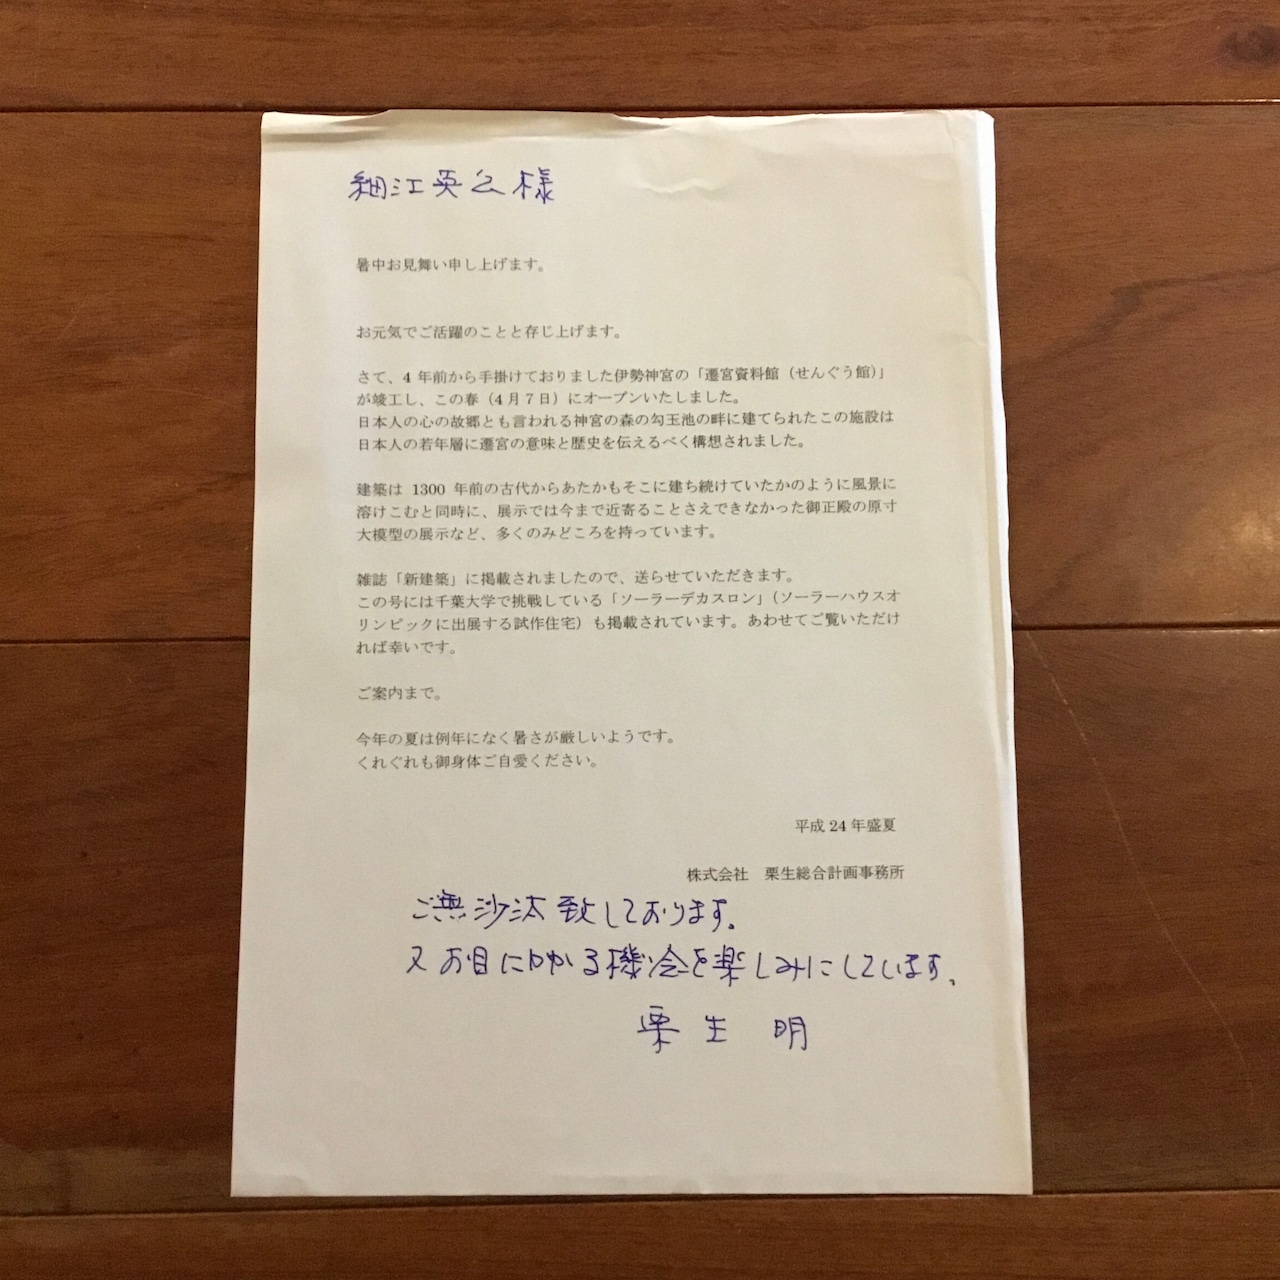 細江英公様
暑中お見舞い申し上げます。
お元気でご活躍のことと存じ上げます。
さて、4 年前から手掛けておりました伊勢神宮の「遷宮資料館（せんぐう館）」
が竣工し、この春（4 月 7 日）にオープンいたしました。
日本人の心の故郷とも言われる神宮の森の勾玉池の畔に建てられたこの施設は
日本人の若年層に遷宮の意味と歴史を伝えるべく構想されました。
建築は 1300 年前の古代からあたかもそこに建ち続けていたかのように風景に
溶けこむと同時に、展示では今まで近寄ることさえできなかった御正殿の原寸
大模型の展示など、多くのみどころを持っています。
雑誌「新建築」に掲載されましたので、送らせていただきます。
この号には千葉大学で挑戦している「ソーラーデカスロン」（ソーラーハウスオ
リンピックに出展する試作住宅）も掲載されています。あわせてご覧いただけ
れば幸いです。
ご案内まで。
今年の夏は例年になく暑さが厳しいようです。
くれぐれも御身体ご自愛ください。
平成 24 年盛夏
株式会社　栗生総合計画事務所
ご無沙汰致しております。
又お目にかかる機会を楽しみにしています。
栗生 明